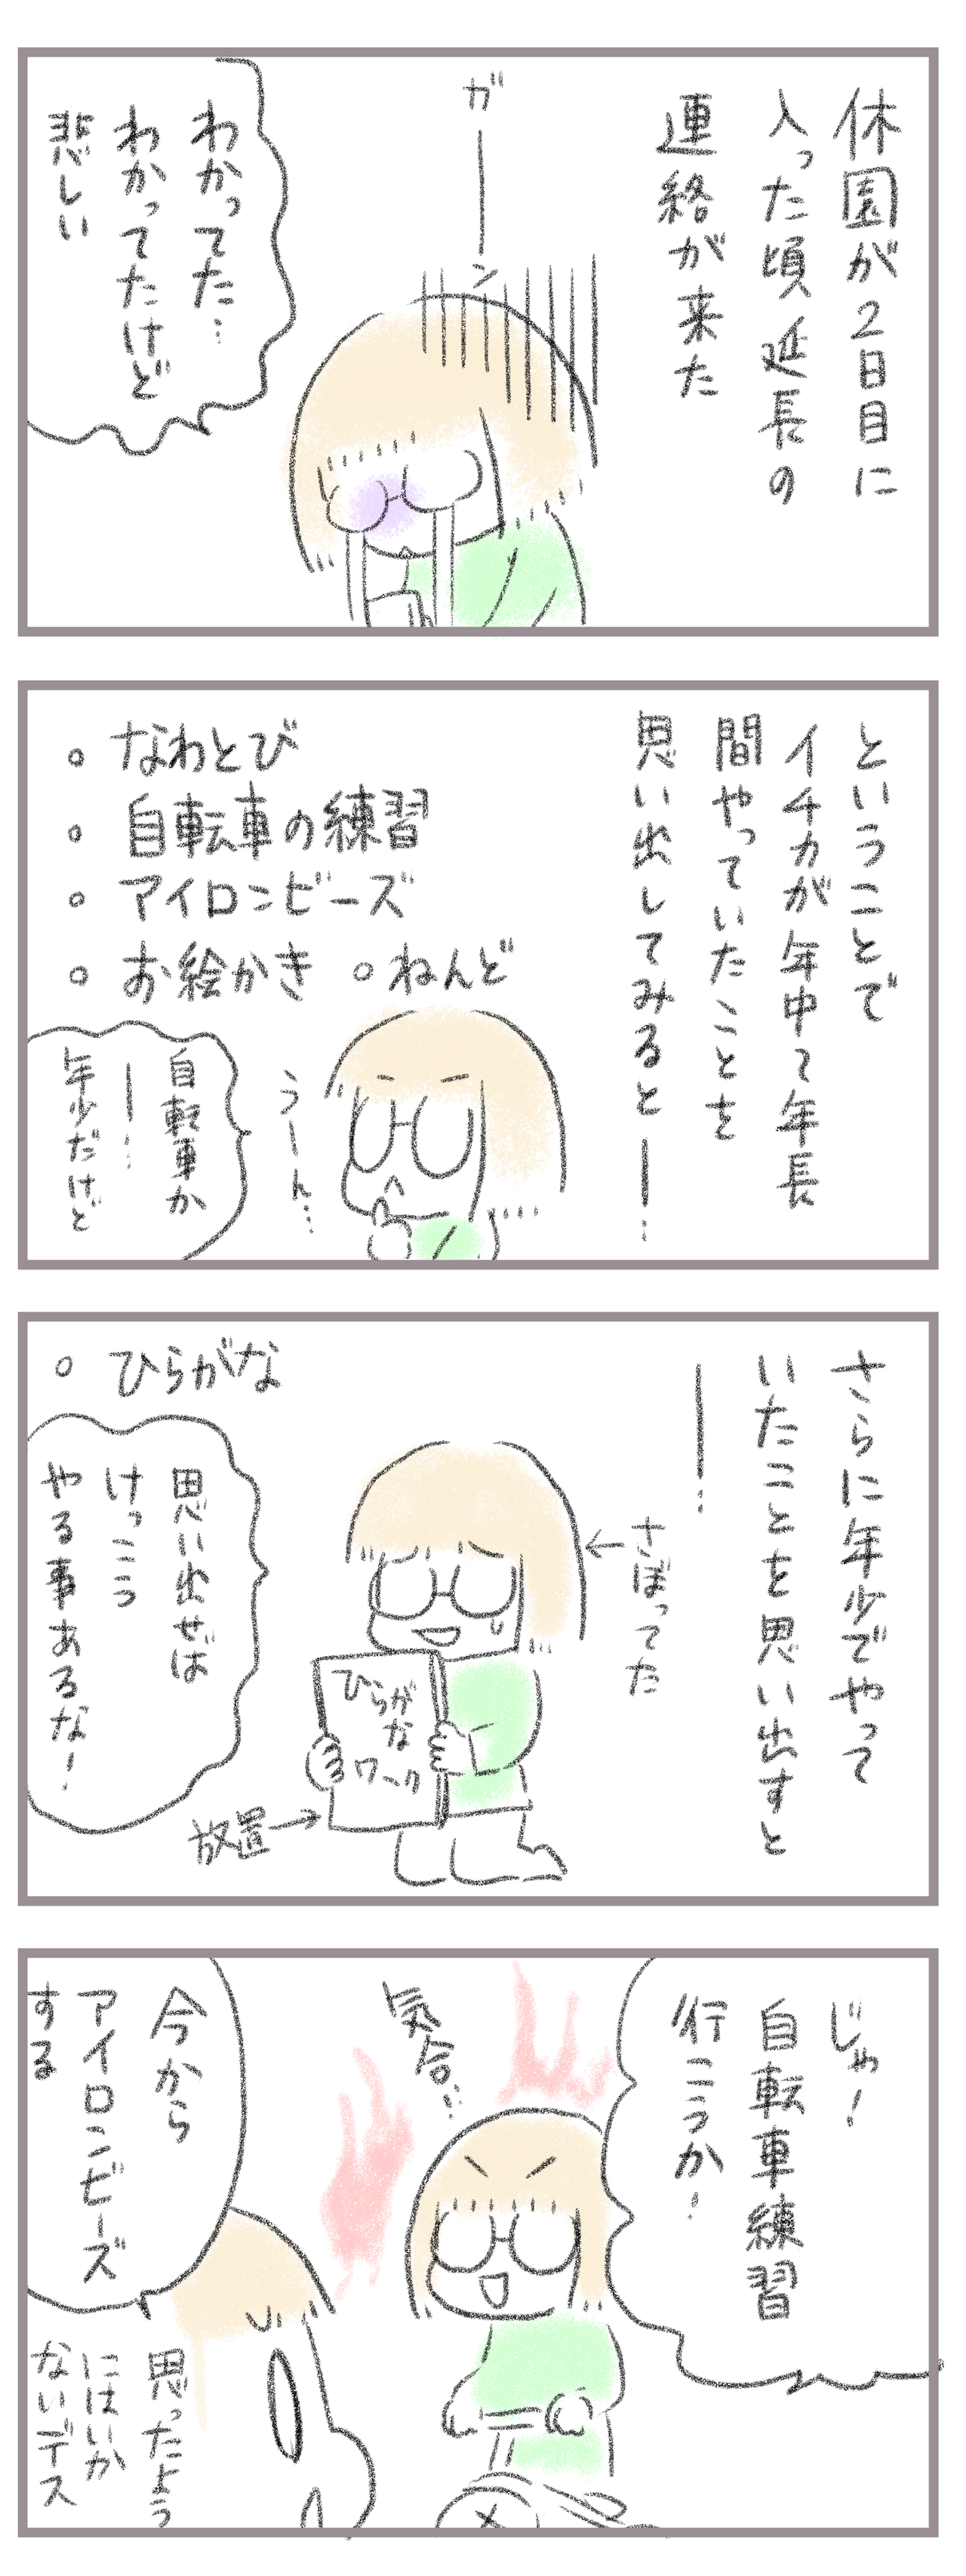 休園が2日目に
入った頃延長の
連絡が来た
ガーン
わかってた…
わかってたけど
悲しい
ということで
イチカが年中て年長
間やっていたことを
思い出してみるとー…
○なわとび
○自転車の練習
○アイロンビーズ
○お絵かき ○ねんど
うーん…
自転車か
ー…
年少だけど
さらに年少でやって
いたことを思い出すと
ー…
○ひらがな
←さぼってた
ひらが
な
ワーク
放置→
思い出せば
けっこう
やる事あるな!
じゃ!
自転車練習
行こうか!
気合…
今から
アイロンビーズ
する
思ったよう
にはいか
ないデス